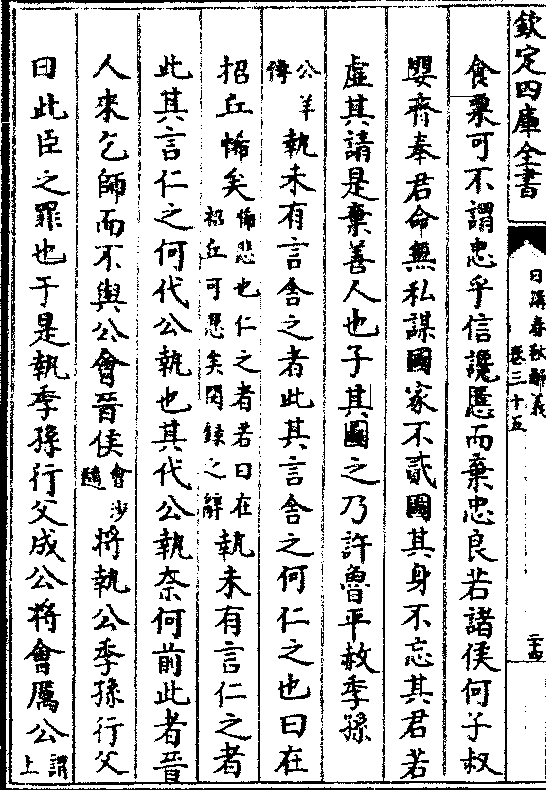 欽定四庫全書
日講春秋解義
卷三十五
二十四
食粟可不謂忠乎信讒慝而棄忠良若諸侯何子叔
嬰齊奉君命無私謀國家不貳圖其身不忘其君若
虛其請是棄善人也子其圖之乃許魯平赦季孫
公羊傳執未有言舍之者此其言舍之何仁之也曰在
招丘悕矣悕悲也仁之者若曰在招丘可悲矣閔録之辭執未有言仁之者
此其言仁之何代公執也其代公執奈何前此者晉
人來乞師而不與公會晉侯會沙隨將執公季孫行父
曰此臣之罪也于是執季孫行父成公將會厲公謂上